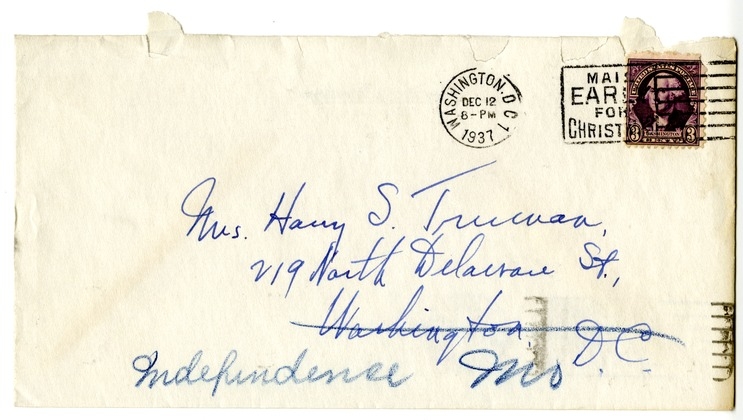 WASHINGTON, D.C. 1
DEC 12
8-PM
1937
MAIL
EARLY
FOR
CHRISTMAS
UNITED STATES POSTAGE
3 WASHINGTON 3
Mrs. Harry S. Truman,
219 North Delaware St.,
Washington D.C.
Independence Mo